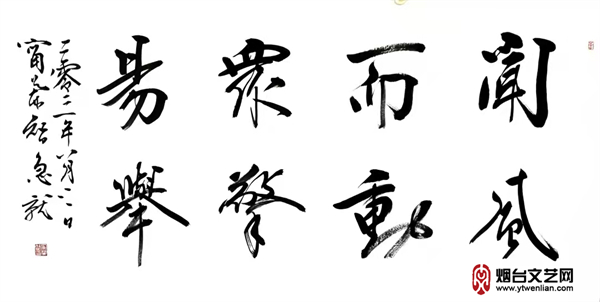 聞風
而動
眾擎
易舉
二零二一年八月二日
急就
烟台文艺网
www.ytwenlian.com